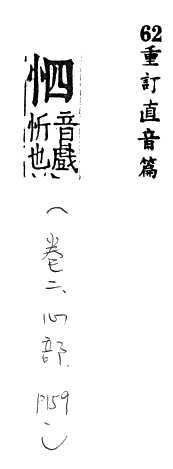 62重訂直音篇
怬
音戲
忻也
(卷二、心部、P159)